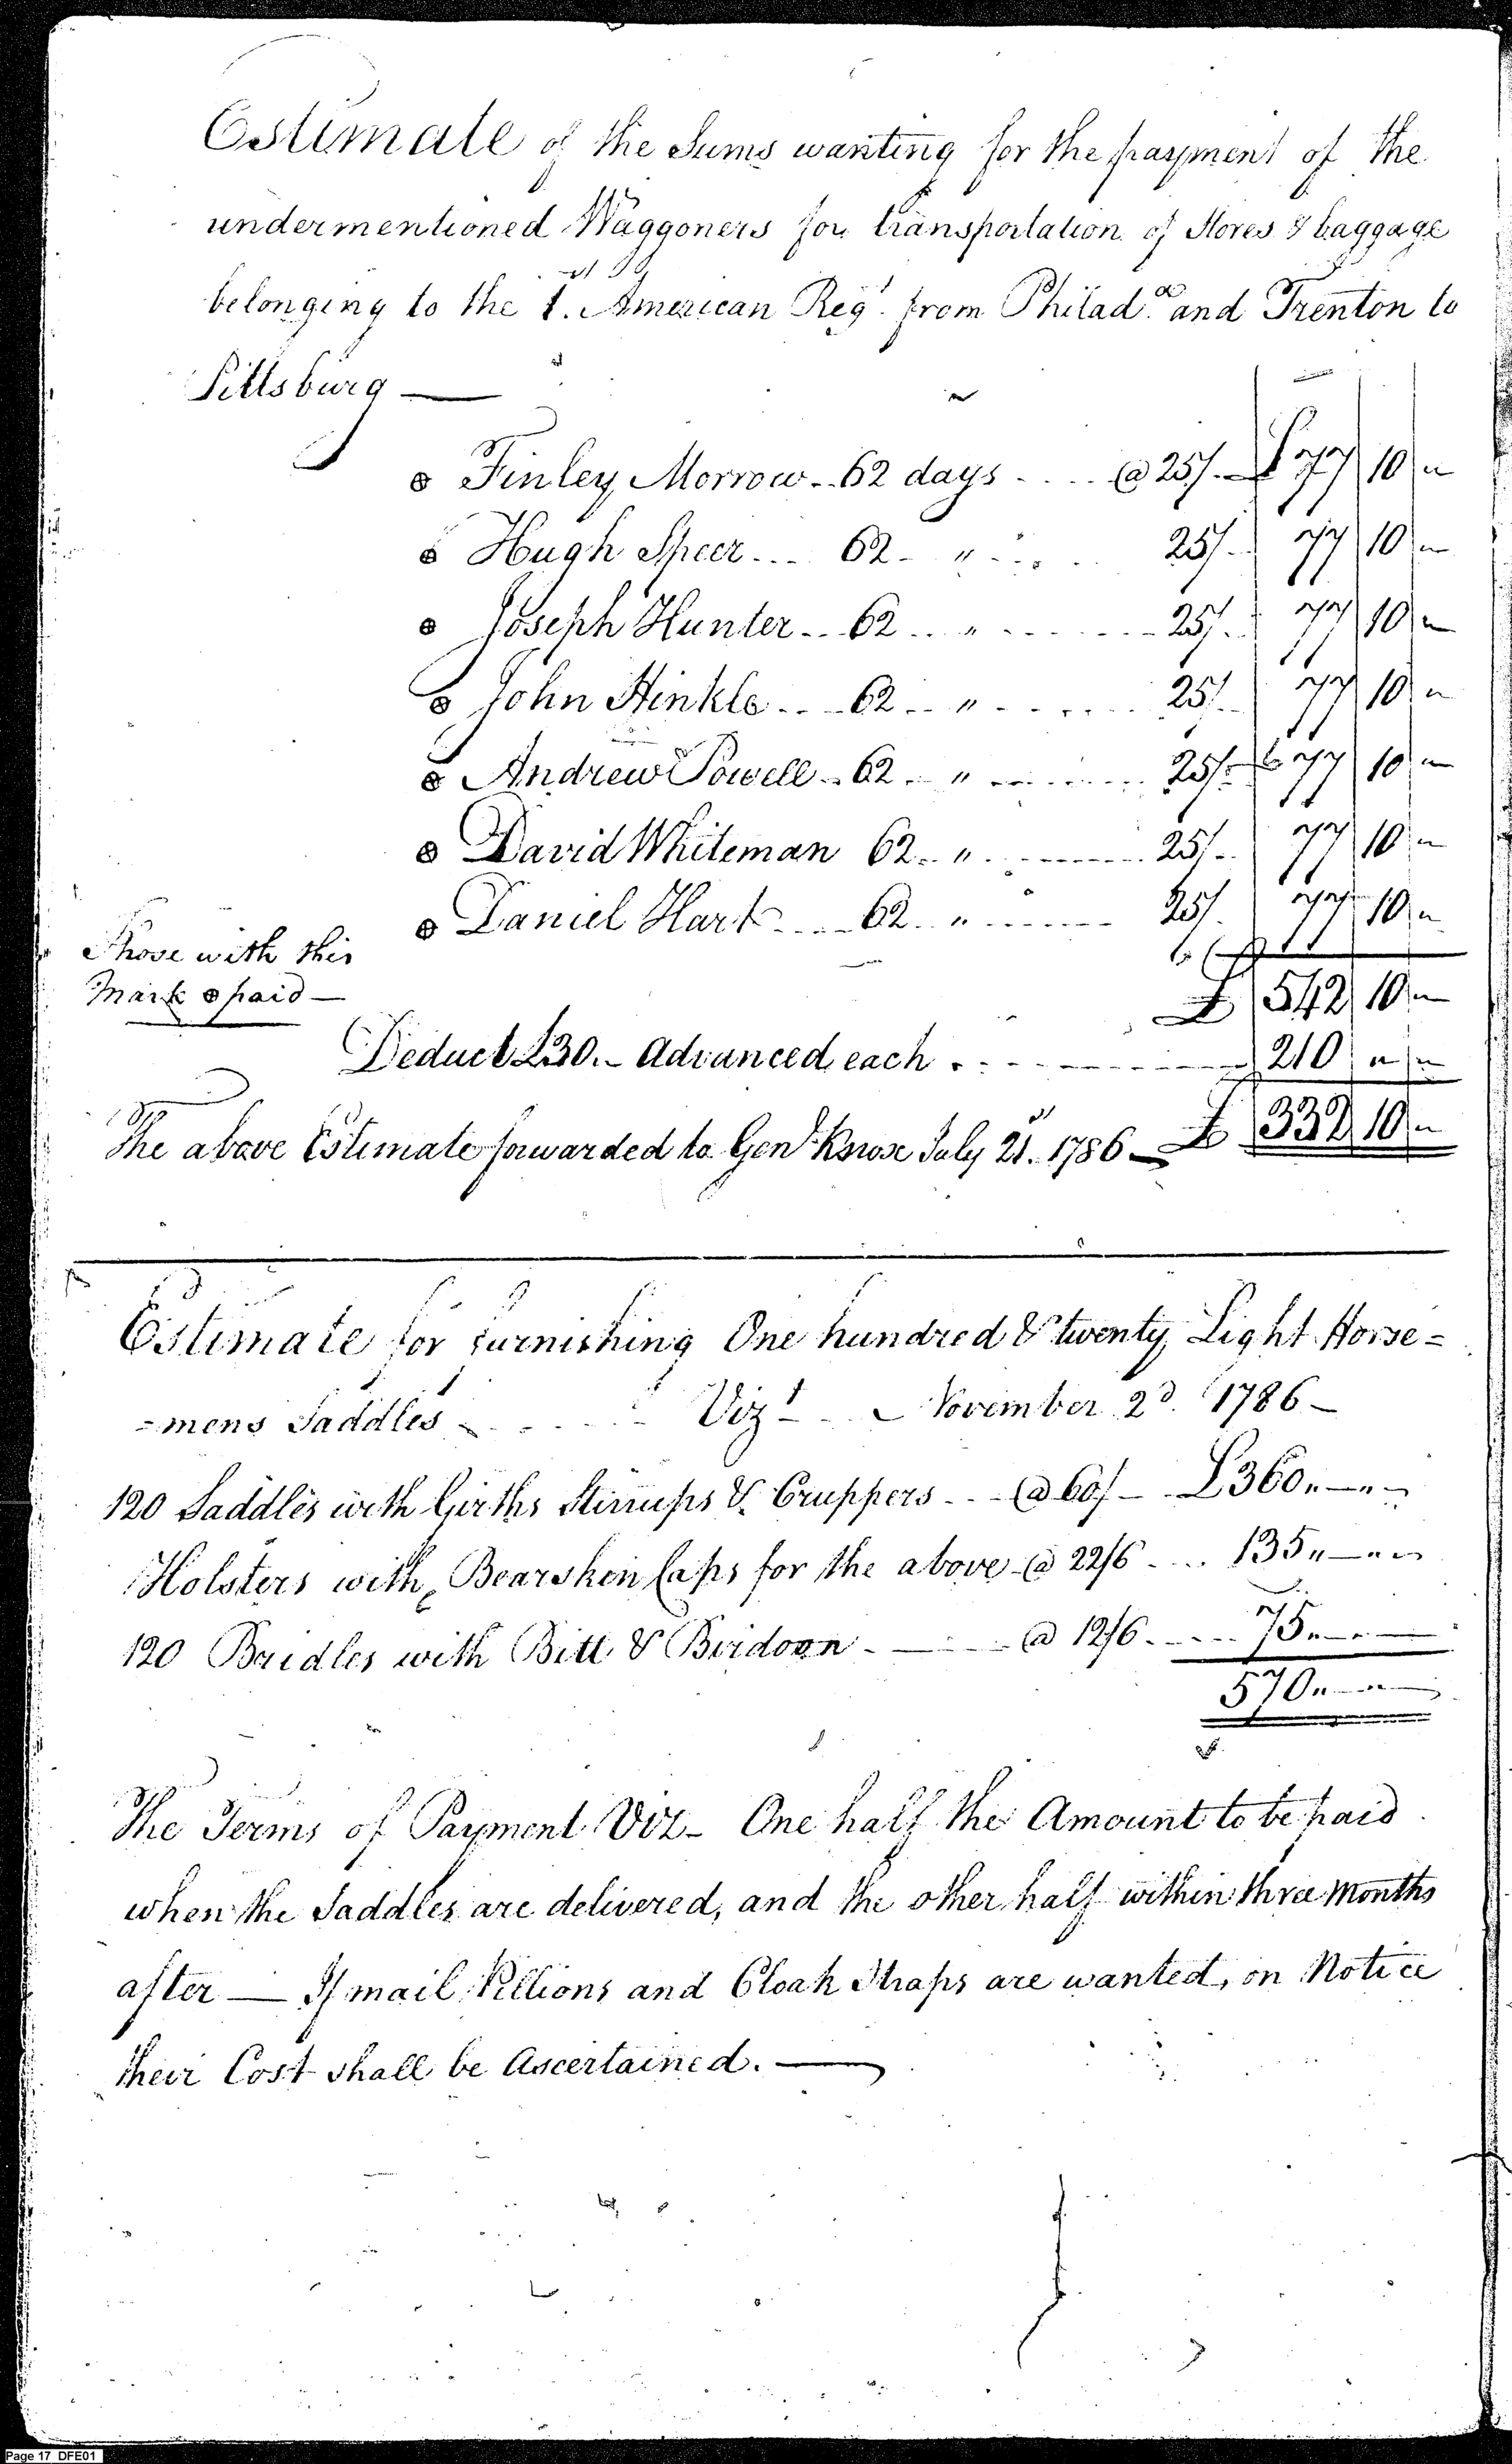 Estimate of the Sums wanting for the payment of the
undermentioned Waggoners for transportation of Stores & baggage
belonging to the 1.st American Regt. from Philada. and Trenton to
Pittsburg —
Finley Morrow .. 62 days .... @ 25/. — £ 77 | 10 | "
Hugh Speer ... 62 - " ... 25/. 77 | 10 | "
Joseph Hunter .. 62 .. " ...... 25/. 77 | 10 | "
John Hinkle ... 62 .. " ...... 25/. 77 | 10 | "
Andrew Powell .. 62 .. " ...... 25/. 77 | 10 | "
David Whiteman 62 .. " ...... 25/. 77 | 10 | "
Daniel Hart .... 62 .. " ...... 25/. 77 | 10 | "
Those with this
Mark ⊕ paid —
£ 542 | 10 | "
Deduct £30. - Advanced each ........ 210 | " | "
The above Estimate forwarded to Genl. Knox July 21.st 1786 — £ 332 | 10 | "
Estimate for furnishing One hundred & twenty Light Horse =
= mens Saddles ...... Vizt - .. November 2d. 1786 —
120 Saddles with Girths Stirrups & Cruppers ... @ 60/ — £360 " — " —
Holsters with Bearskin Caps for the above @ 22/6 .... 135 " — " —
120 Bridles with Bitt & Birdoon - —— @ 12/6 ..... 75 " — " —
570 " — " —
The Terms of Payment Viz - One half the Amount to be paid
when the Saddles are delivered, and the other half within three Months
after — If mail Pillions and Cloak Straps are wanted, on Notice
their Cost shall be Ascertained. —
Page 17 DFE01